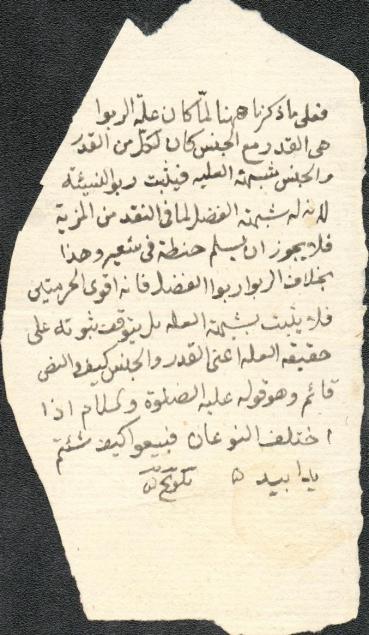 فعلى ما ذكرنا ههنا لمّا كان علة الربوا
هى القدر مع الجنس كان لكل من القدر
والجنس شبهة العليه فيثبت ربوا النسيئة
لانه له شبهة الفضل لما فى النقد من المزية
فلا يجوز ان يسلم حنطة فى شعير وهذا
بخلاف الربوا ربوا الفضل فانه اقوى الحرمتين
فلا يثبت بشبهة العله بل يتوقف ثبوته على
حقيقه العلة اعنى القدر والجنس كيف والنص
قائم وهو قوله عليه الصلوة والسلام اذا
اختلف النوعان فبيعوا كيف شئتم
يدا بيد ه تلويح